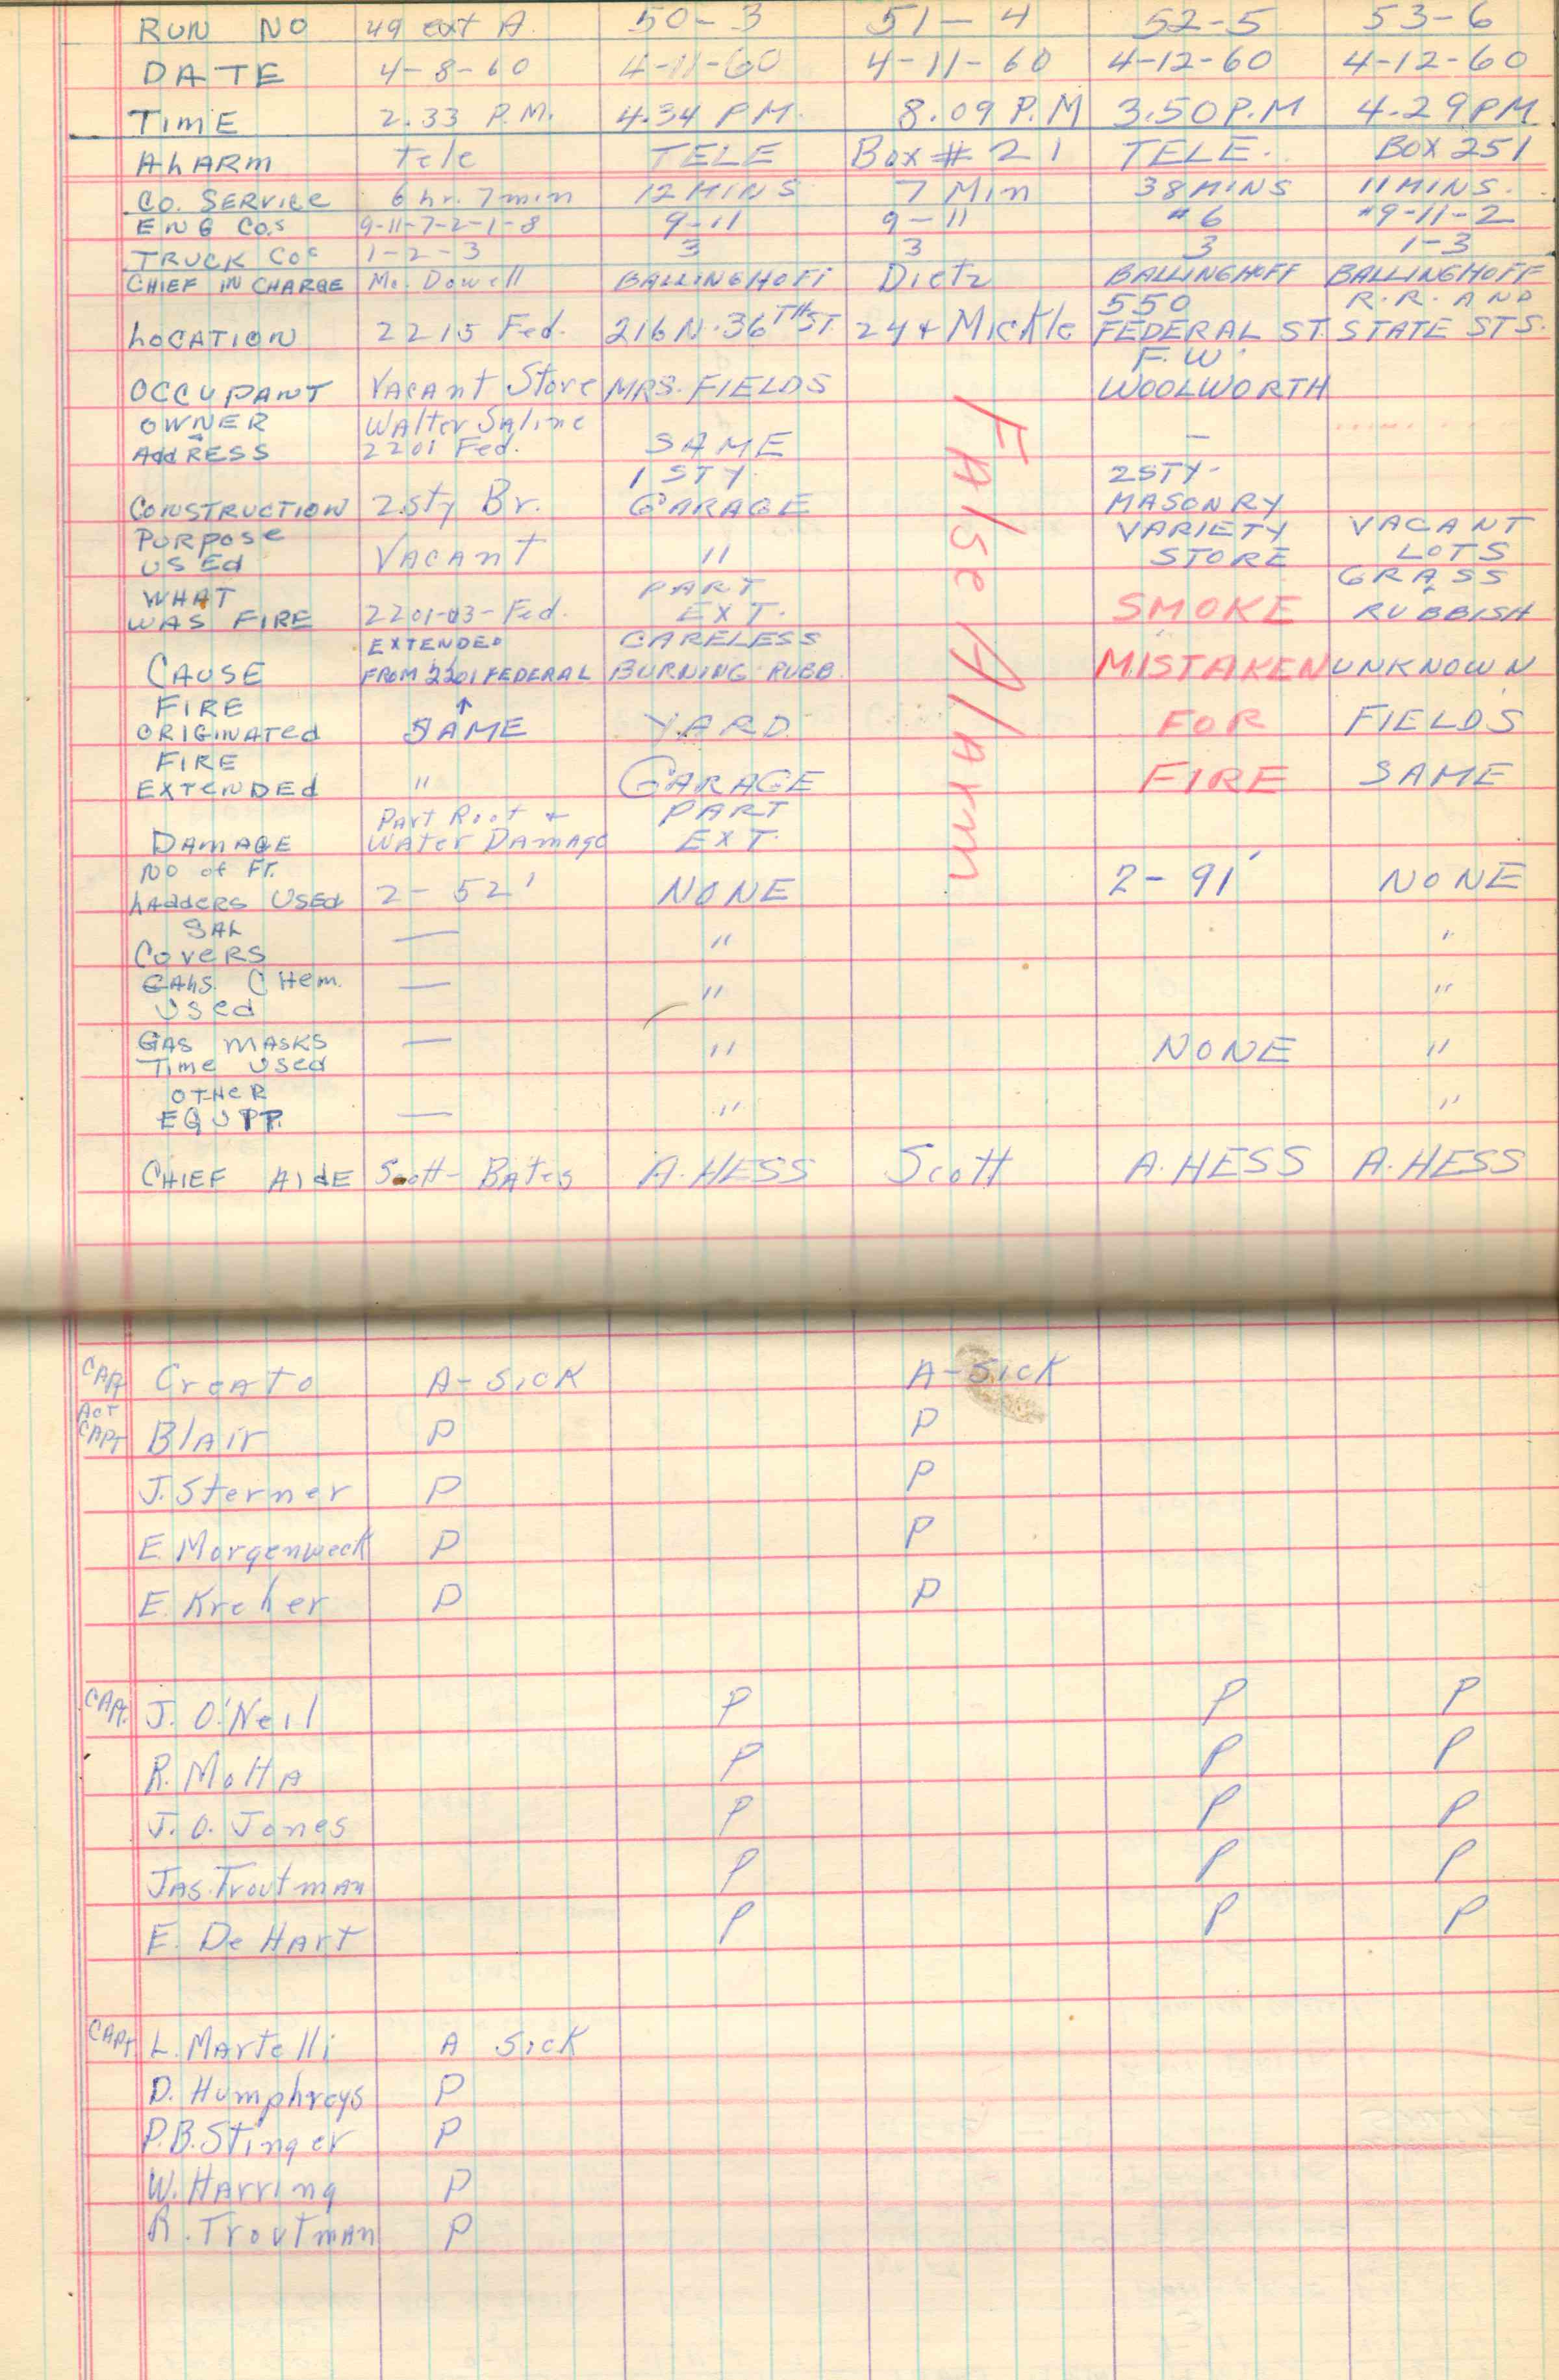 RUN NO 49 ext A. 50-3 51-4 52-5 53-6
DATE 4-8-60 4-11-60 4-11-60 4-12-60 4-12-60
TIME 2.33 P.M. 4.34 PM. 8.09 P.M 3.50 P.M 4.29 PM
ALARM Tele TELE Box # 21 TELE. BOX 251
CO. SERVICE 6 hr. 7 min 12 MINS 7 Min 38 MINS 11 MINS.
ENG COS 9-11-7-2-1-8 9-11 9-11 #6 #9-11-2
TRUCK COS 1-2-3 3 3 3 1-3
CHIEF IN CHARGE Mc. Dowell BALLINGHOFF Dietz BALLINGHOFF BALLINGHOFF
550 R.R. AND
LOCATION 2215 Fed. 216 N. 36TH ST. 24 + Mickle FEDERAL ST. STATE STS.
F.W.
OCCUPANT VACANT Store MRS. FIELDS WOOLWORTH
OWNER Walter Saline
AddRESS 2201 Fed. SAME —
1 STY. 2 STY-
CONSTRUCTION 2 sty Br. GARAGE MASONRY
PURPOSE VARIETY VACANT
USEd VACANT " STORE LOTS
WHAT PART GRASS
WAS FIRE 2201-03-Fed. EXT. SMOKE RUBBISH
EXTENDED CARELESS
CAUSE FROM 2201 FEDERAL BURNING RUBB. False Alarm MISTAKEN UNKNOWN
FIRE
ORIGINATEd SAME YARD. FOR FIELDS
FIRE
EXTENDEd " GARAGE FIRE SAME
Part Roof + PART
DAMAGE Water Damage EXT.
NO of Ft.
LADDERS USEd 2 - 52' NONE 2 - 91' NONE
SAL
COVERS — " "
GALS. CHem. — " "
Used
GAS MASKS — " NONE "
Time Used
OTHER
EQUPP. — " "
CHIEF AIdE Scott - Bates A. HESS Scott A. HESS A. HESS
CAPT Creato A-Sick A-Sick
ACT
CAPT Blair P P
J. Sterner P P
E. Morgenweck P P
E. Kreher P P
CAPT. J. O'Neil P P P
R. Motta P P P
J. O. Jones P P P
Jas. Troutman P P P
E. De Hart P P P
CAPT L. Martelli A Sick
D. Humphreys P
P.B. Stinger P
W. Harring P
R. Troutman P